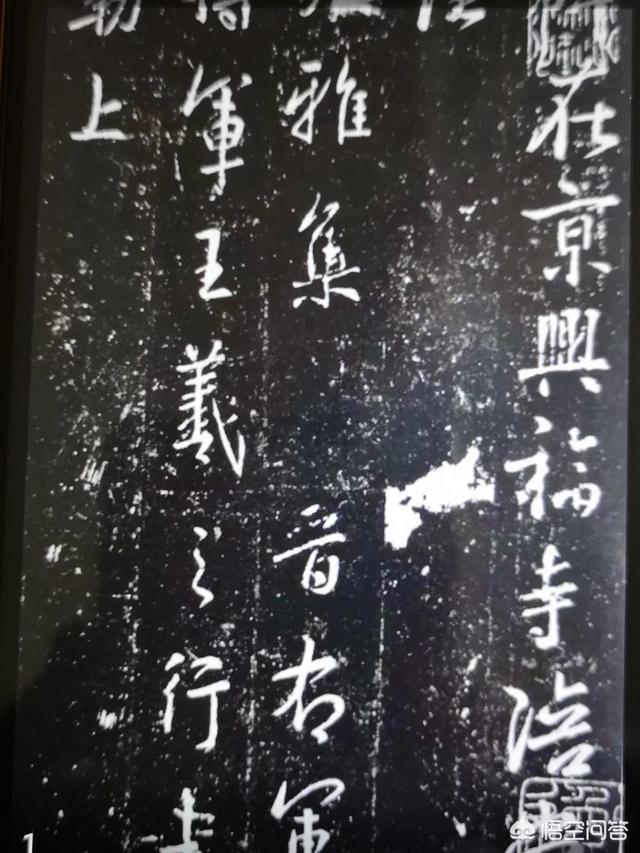 在京興福寺陪
雅集晉右軍
將軍王羲之行書
勒上
1
悟空问答